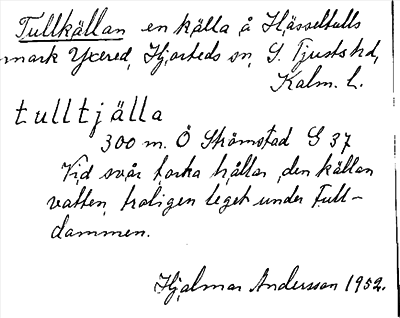 Tullkällan en källa å Hässeltulls
mark Yxered, Hjorteds sn, S. Tjusts hd,
Kalm. l.
tulltjälla
300 m. Ö Strömstad G 37
Vid svår torka håller den källan
vatten, troligen leget under Tull-
dammen.
Hjalmar Andersson 1952.